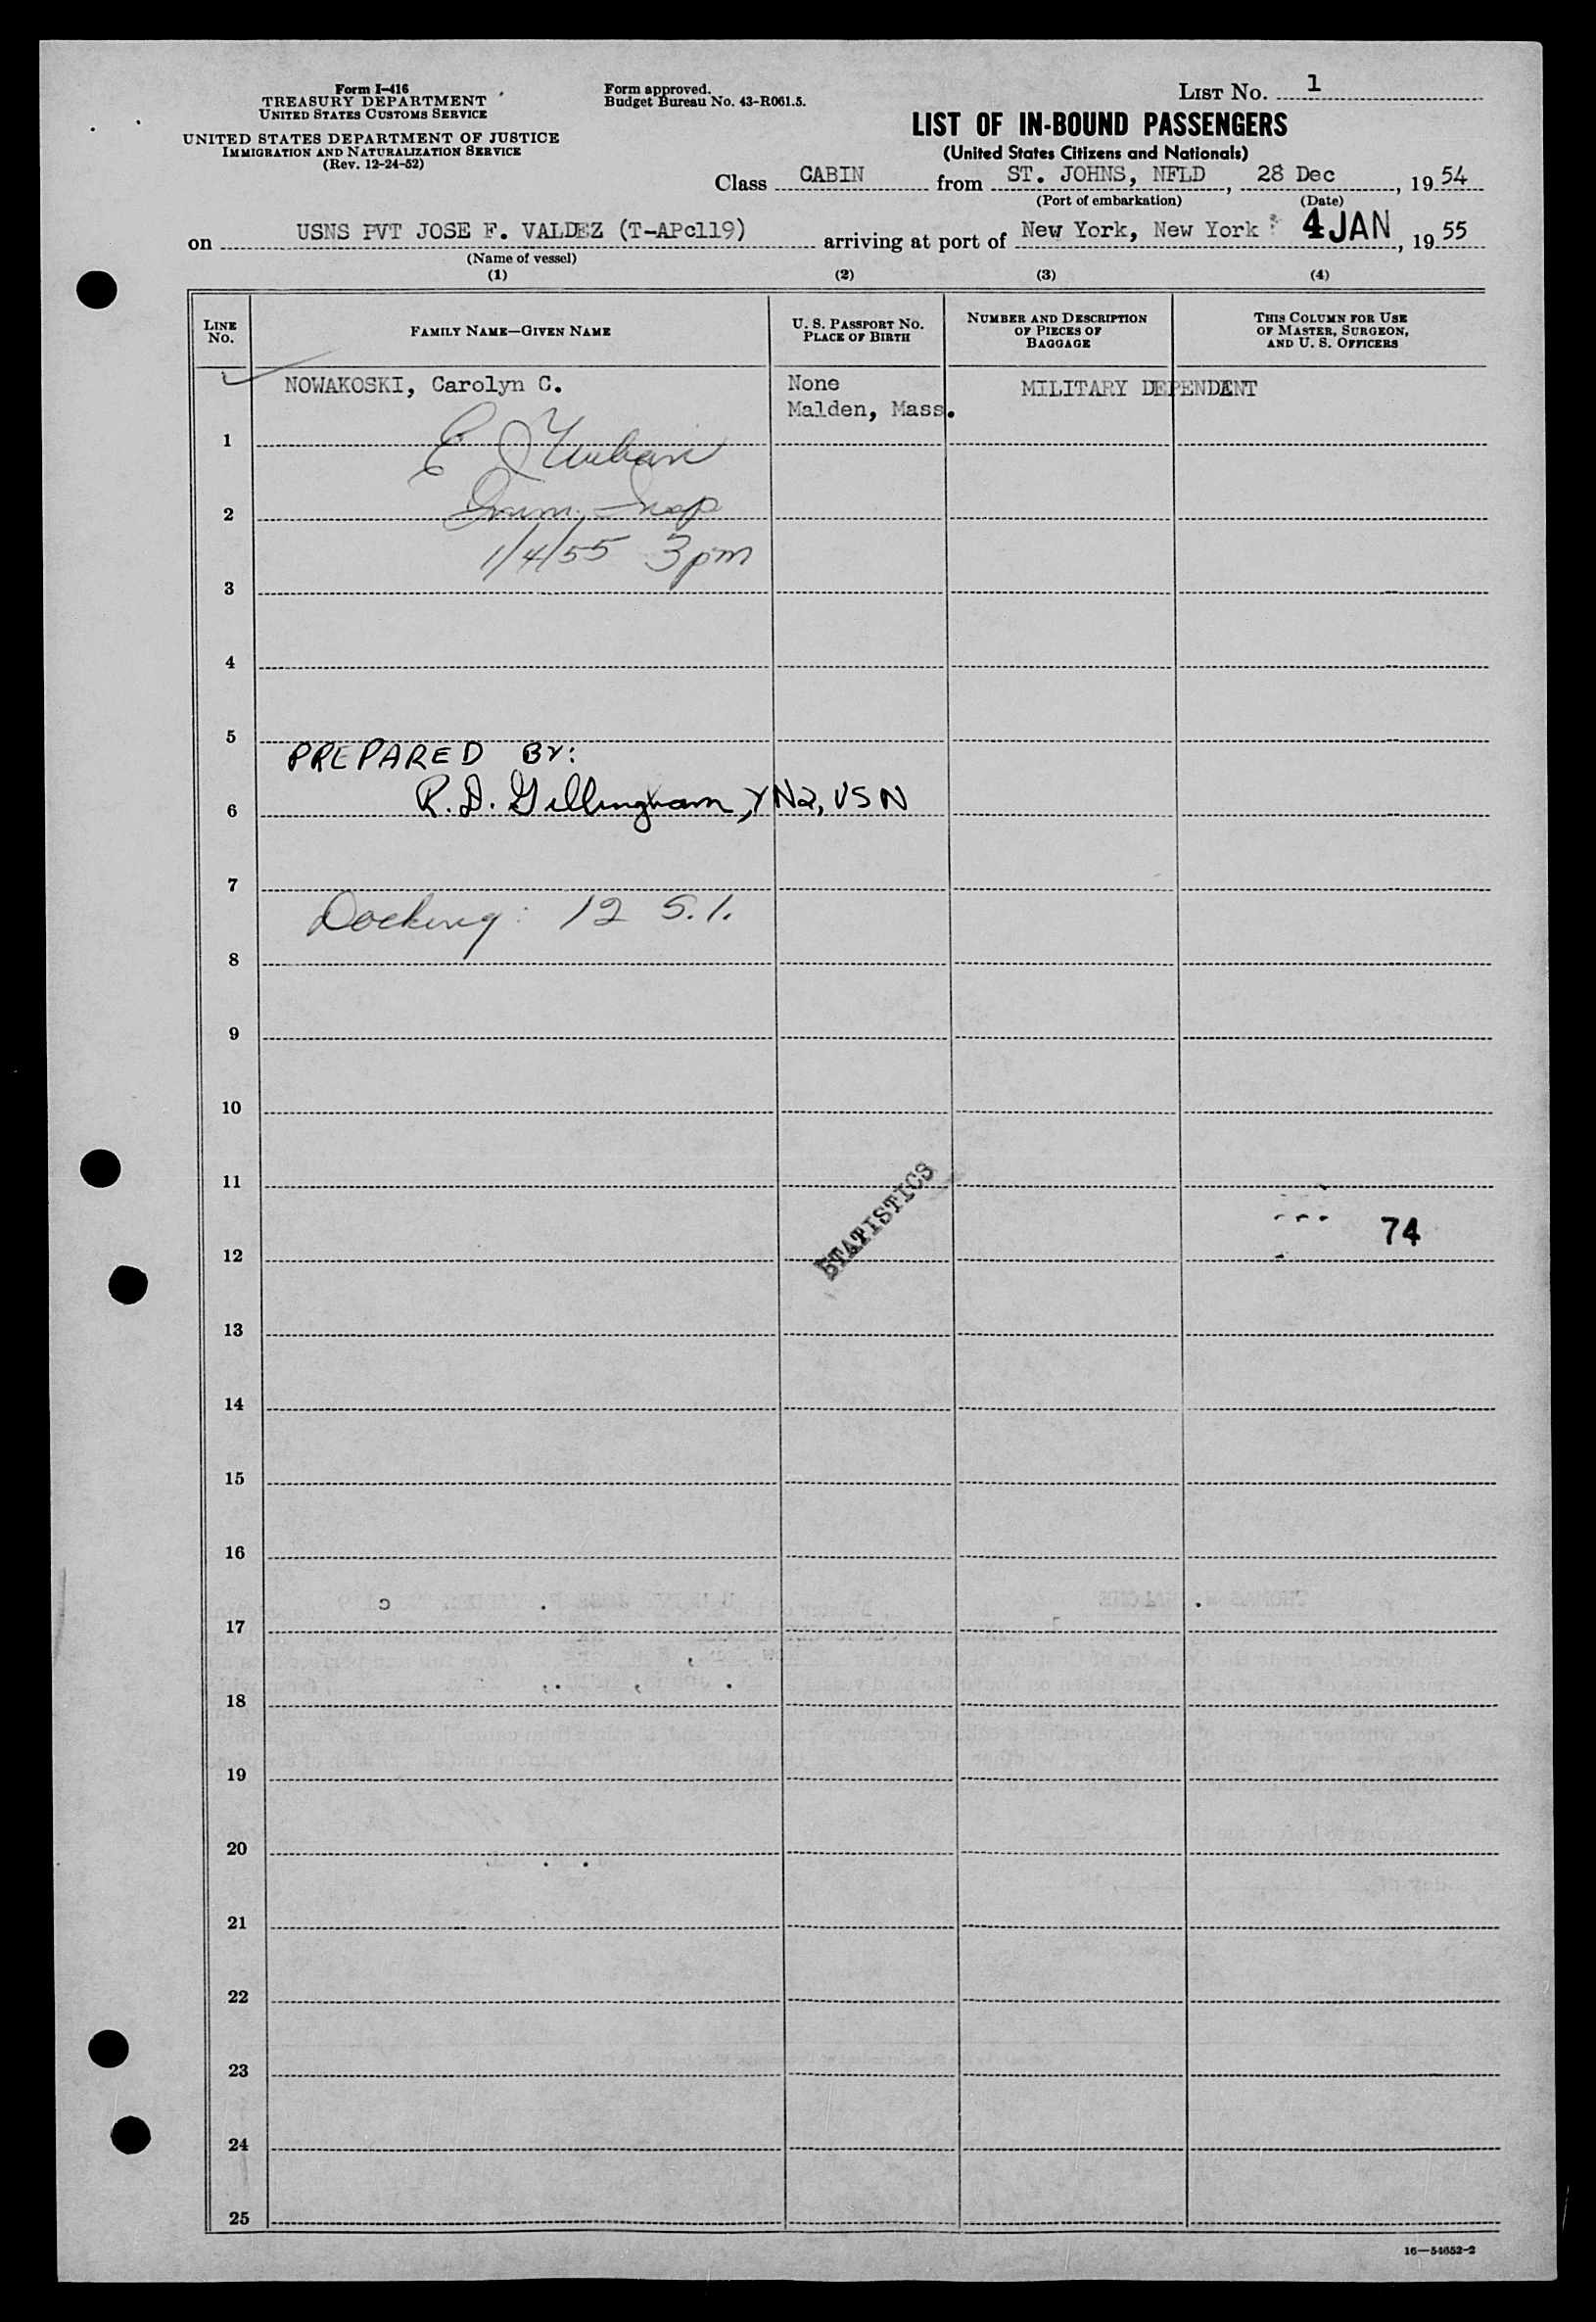 Form I-416
TREASURY DEPARTMENT
UNITED STATES CUSTOMS SERVICE
UNITED STATES DEPARTMENT OF JUSTICE
IMMIGRATION AND NATURALIZATION SERVICE
(Rev. 12-24-52)
Form approved.
Budget Bureau No. 43-R061.5.
LIST No. 1
LIST OF IN-BOUND PASSENGERS
(United States Citizens and Nationals)
Class CABIN from ST. JOHNS, NFLD, 28 Dec, 1954
(Port of embarkation) (Date)
on USNS PVT JOSE F. VALDEZ (T-APc119) arriving at port of New York, New York 4 JAN, 1955
(Name of vessel)
(1) (2) (3) (4)
LINE No.
FAMILY NAME—GIVEN NAME
U. S. PASSPORT No.
PLACE OF BIRTH
NUMBER AND DESCRIPTION
OF PIECES OF
BAGGAGE
THIS COLUMN FOR USE
OF MASTER, SURGEON,
AND U. S. OFFICERS
NOWAKOSKI, Carolyn C. None MILITARY DEPENDENT
Malden, Mass.
1
E
2 Imm. Insp
1/4/55 3pm
3
4
5
PREPARED BY:
6 R.D. Gillingham, YN2, USN
7
Docking: 12 S.I.
8
9
10
11
STATISTICS
74
12
13
14
15
16
17
18
19
20
21
22
23
24
25
16—54652-2